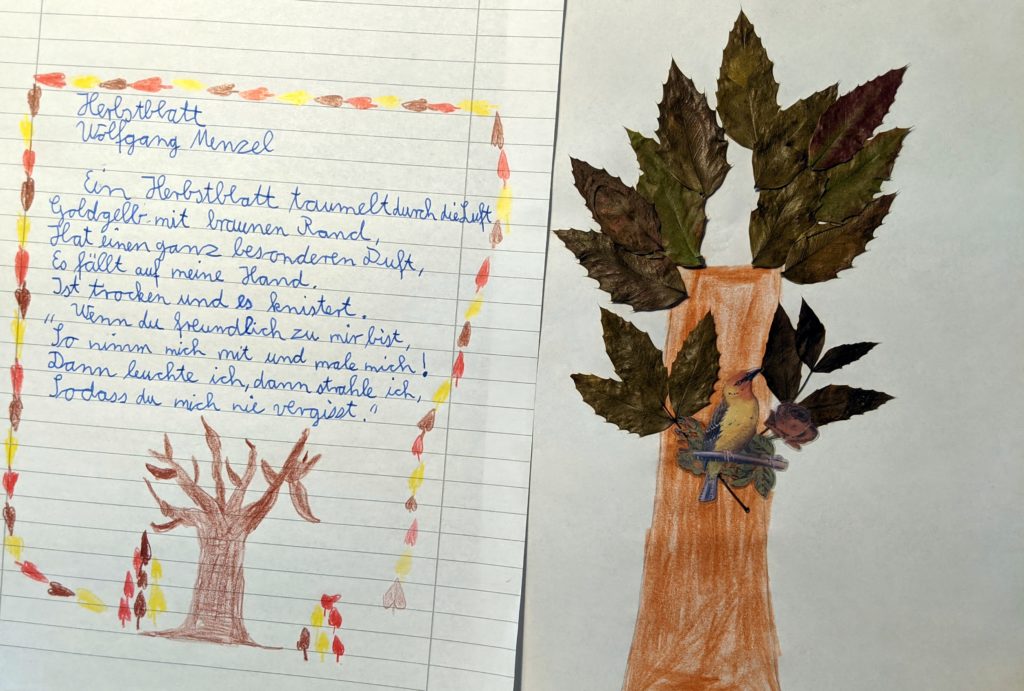 Herbstblatt
Wolfgang Menzel
Ein Herbstblatt taumelt durch die Luft
Goldgelb mit braunen Rand,
Hat einen ganz besonderen Duft,
Es fällt auf meine Hand.
Ist trocken und es knistert.
„Wenn du freundlich zu mir bist,
So nimm mich mit und male mich!
Dann leuchte ich, dann strahle ich,
Sodass du mich nie vergisst."